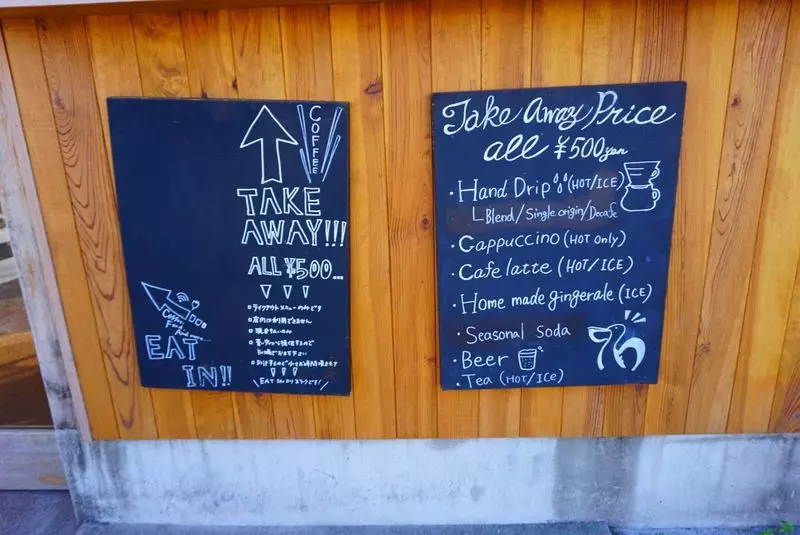 COFFEE
TAKE
AWAY!!!
ALL ¥500...
テイクアウトメニューのみです
店内は利用できません
EAT
IN!!
Take Away Price
all ¥500yen
・Hand Drip (HOT/ICE)
Blend/Single origin/Decafe
・Cappuccino (HOT only)
・Cafe latte (HOT/ICE)
・Home made gingerale (ICE)
・Seasonal Soda
・Beer
・Tea (HOT/ICE)